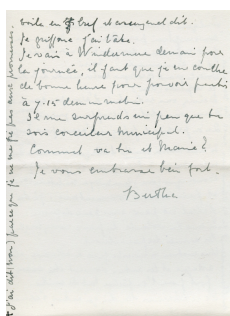 voilà en bref et
Je griffonne j'ai hâte.
Je vais à Windermere demain pour
la journée, il faut que je me couche
de bonne heure pour pouvoir partir
à 7.15 demain matin.
Je me surprends un peu que tu
sois conseiller municipal.
Comment va tu et Mamie?
Je vous embrasse bien fort.
Berthe
j'ai dit (bran) parce que je ne me pas